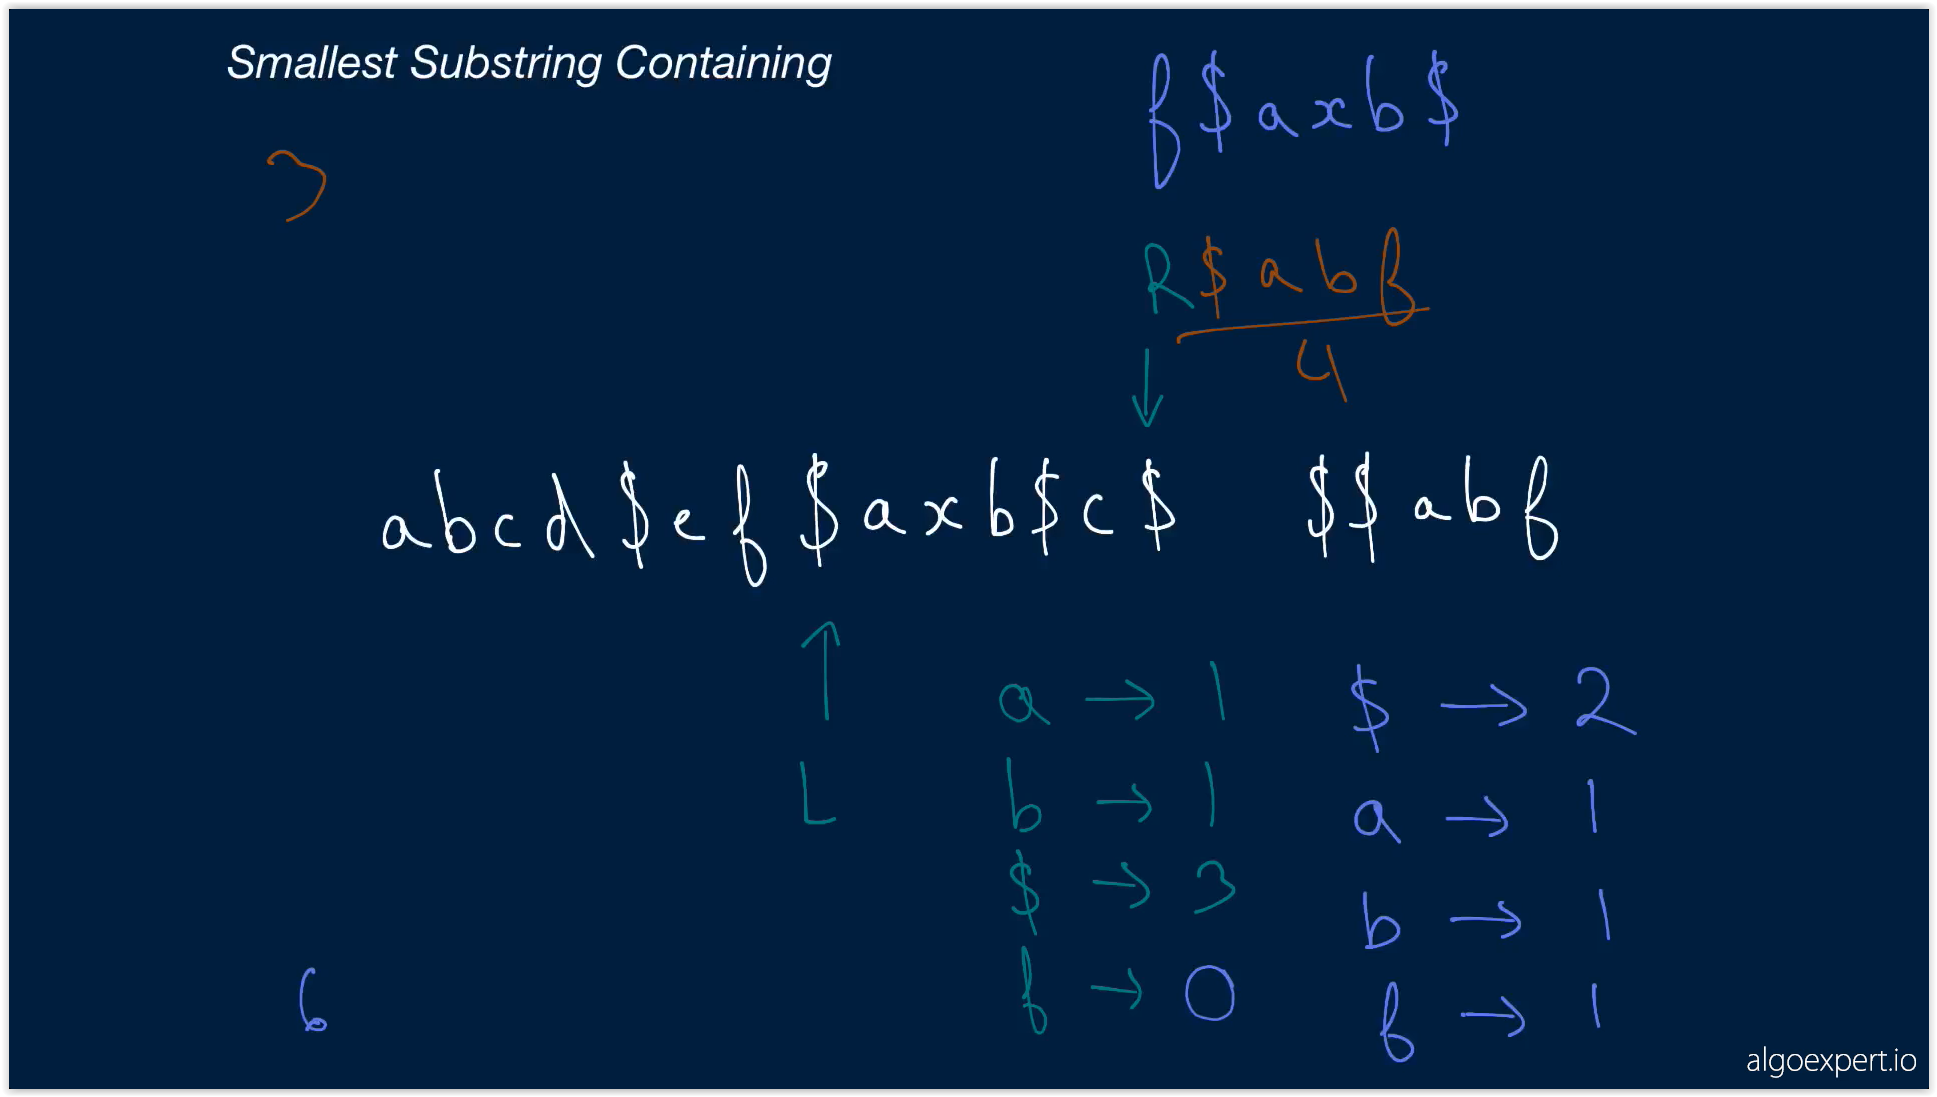 Smallest Substring Containing
f$axb$
3
R $abf
4
↓
abcd$ef$axb$c$ $$abf
↑
L
a → 1
b → 1
$ → 3
f → 0
$ → 2
a → 1
b → 1
f → 1
6
algoexpert.io